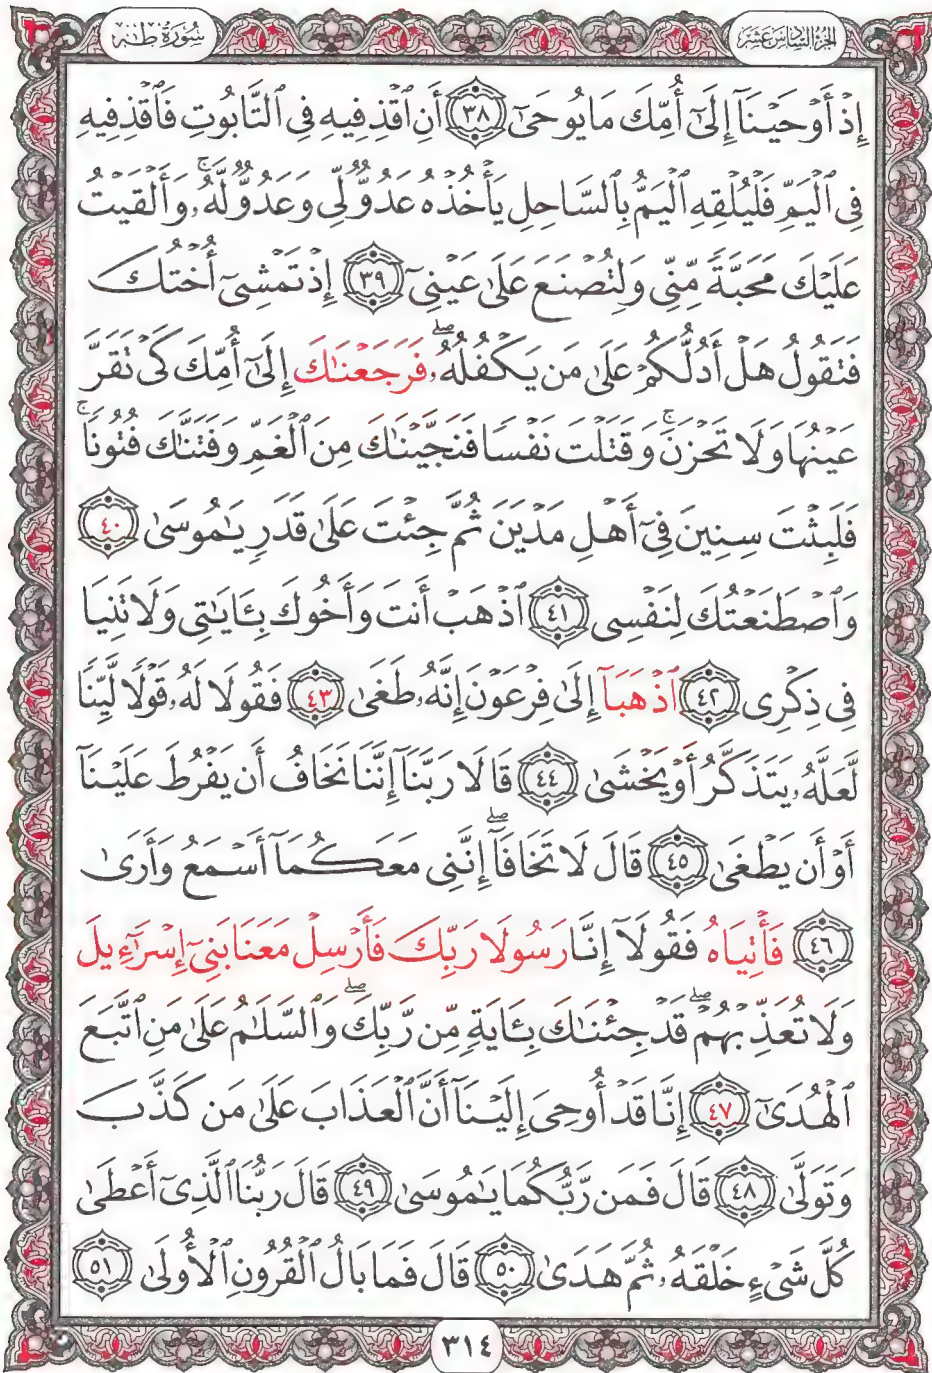 الجزء السادس عشر
سورة طه
إِذْ أَوْحَيْنَآ إِلَىٰٓ أُمِّكَ مَا يُوحَىٰٓ ٣٨ أَنِ ٱقْذِفِيهِ فِى ٱلتَّابُوتِ فَٱقْذِفِيهِ
فِى ٱلْيَمِّ فَلْيُلْقِهِ ٱلْيَمُّ بِٱلسَّاحِلِ يَأْخُذْهُ عَدُوٌّ لِّى وَعَدُوٌّ لَّهُۥ ۚ وَأَلْقَيْتُ
عَلَيْكَ مَحَبَّةً مِّنِّى وَلِتُصْنَعَ عَلَىٰ عَيْنِىٓ ٣٩ إِذْ تَمْشِىٓ أُخْتُكَ
فَتَقُولُ هَلْ أَدُلُّكُمْ عَلَىٰ مَن يَكْفُلُهُۥ ۖ فَرَجَعْنَٰكَ إِلَىٰٓ أُمِّكَ كَىْ تَقَرَّ
عَيْنُهَا وَلَا تَحْزَنَ ۚ وَقَتَلْتَ نَفْسًا فَنَجَّيْنَٰكَ مِنَ ٱلْغَمِّ وَفَتَنَّٰكَ فُتُونًا ۚ
فَلَبِثْتَ سِنِينَ فِىٓ أَهْلِ مَدْيَنَ ثُمَّ جِئْتَ عَلَىٰ قَدَرٍ يَٰمُوسَىٰ ٤٠
وَٱصْطَنَعْتُكَ لِنَفْسِى ٤١ ٱذْهَبْ أَنتَ وَأَخُوكَ بِـَٔايَٰتِى وَلَا تَنِيَا
فِى ذِكْرِى ٤٢ ٱذْهَبَآ إِلَىٰ فِرْعَوْنَ إِنَّهُۥ طَغَىٰ ٤٣ فَقُولَا لَهُۥ قَوْلًا لَّيِّنًا
لَّعَلَّهُۥ يَتَذَكَّرُ أَوْ يَخْشَىٰ ٤٤ قَالَا رَبَّنَآ إِنَّنَا نَخَافُ أَن يَفْرُطَ عَلَيْنَآ
أَوْ أَن يَطْغَىٰ ٤٥ قَالَ لَا تَخَافَآ ۖ إِنَّنِى مَعَكُمَآ أَسْمَعُ وَأَرَىٰ
٤٦ فَأْتِيَاهُ فَقُولَآ إِنَّا رَسُولَا رَبِّكَ فَأَرْسِلْ مَعَنَا بَنِىٓ إِسْرَٰٓءِيلَ
وَلَا تُعَذِّبْهُمْ ۖ قَدْ جِئْنَٰكَ بِـَٔايَةٍ مِّن رَّبِّكَ ۖ وَٱلسَّلَٰمُ عَلَىٰ مَنِ ٱتَّبَعَ
ٱلْهُدَىٰٓ ٤٧ إِنَّا قَدْ أُوحِىَ إِلَيْنَآ أَنَّ ٱلْعَذَابَ عَلَىٰ مَن كَذَّبَ
وَتَوَلَّىٰ ٤٨ قَالَ فَمَن رَّبُّكُمَا يَٰمُوسَىٰ ٤٩ قَالَ رَبُّنَا ٱلَّذِىٓ أَعْطَىٰ
كُلَّ شَىْءٍ خَلْقَهُۥ ثُمَّ هَدَىٰ ٥٠ قَالَ فَمَا بَالُ ٱلْقُرُونِ ٱلْأُولَىٰ ٥١
٣١٤